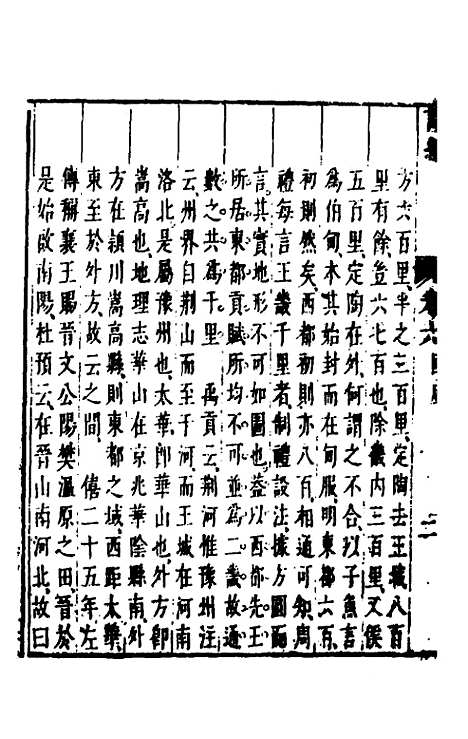 方六百里半之三百里定陶去王城八百
里有餘豈六七百也除畿內三百里又侯
五百里定陶在外何謂之不合以子魚言
爲伯甸本其始封而在甸服明東都六百
初則然矣西都初則亦八百相通可知周
禮每言王畿千里者制禮設法據方圓而
言其實地形不可如圖也益以西都先王
所居東都貢賦所均不可並爲二畿故通
數之共爲千里　禹貢云荆河惟豫州注
云州界自荆山而至于河而王城在河南
洛北是屬豫州也太華即華山也外方即
嵩高也地理志華山在京兆華陰縣南外
方在潁川嵩高縣則東都之域西距太華
東至於外方故云之間　僖二十五年左
傳稱襄王賜晉文公陽樊溫原之田晉於
是始啟南陽杜預云在晉山南河北故曰
卷六
二